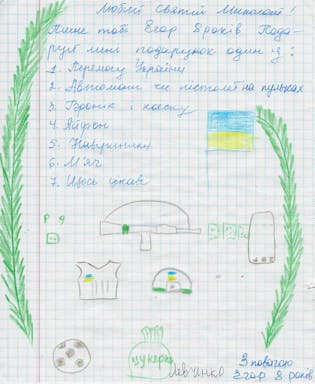 Любий Святий Миколай!
Пише тобі Єгор 8 років Пода-
руй мені подарунок один із:
1. Перемогу України
2. Автомат чи пістолет на пульках
3. Бронік і каску
4. Айфон
5. Навушники
6. М'яч
7. Щось цікаве
цукерки
Левченко
З повагою
Єгор 8 років